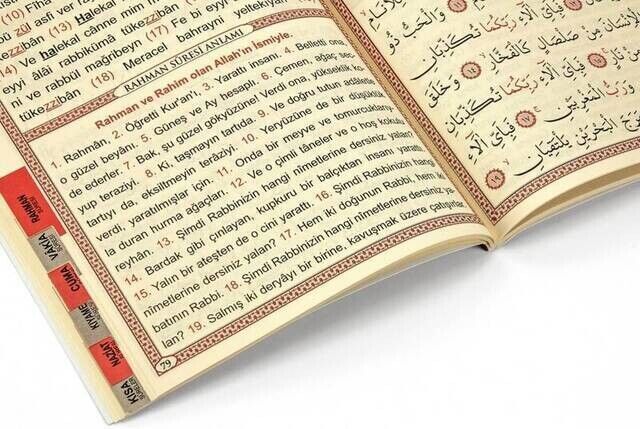 asfi ver rayhân
zül
(13) Fe bi eyyi
(14) Halekal cânne mim
zibân (16)
ve halekal
eyyi âlâi rabbikümâ tükezzibân
ni ve rabbül mağribeyn (17) Fe bi eyyi
tükezzibân (18) Meracel bahrayni yeltekıyân
RAHMAN SÛRESİ ANLAMI
Rahman ve Rahim olan Allah'ın ismiyle.
1. Rahmân, 2. Öğretti Kur'an'ı, 3. Yarattı insanı. 4. Belletti ona,
o güzel beyânı. 5. Güneş ve Ay hesaplı. 6. Çemen, ağaç sec-
de ederler. 7. Bak, şu güzel gökyüzüne! Verdi ona, yükseklik ko-
yup teraziyi. 8. Ki, taşmayın tartıda. 9. Ve doğru tutun adâletle
tartıyı da, eksiltmeyin terâziyi. 10. Yeryüzüne de bir düşüklük
verdi, yaratılmışlar için. 11. Onda bir meyve ve tomurcuklarıy-
la duran hurma ağaçları. 12. Ve o çimli tâneler ve o hoş kokulu
reyhân. 13. Şimdi Rabbinizin hangi nîmetlerine dersiniz yalan?
14. Bardak gibi çınlayan, kupkuru bir balçıktan insanı yarattı.
15. Yalın bir ateşten de o cini yarattı. 16. Şimdi Rabbinizin hangi
nîmetlerine dersiniz yalan? 17. Hem iki doğunun Rabbi, hem iki
batının Rabbi. 18. Şimdi Rabbinizin hangi nîmetlerine dersiniz ya-
lan? 19. Salmış iki deryâyı bir birine, kavuşmak üzere çatışırlar
79
RAHMAN
VAKIA
CUMA
KIYAME
NAZİAT
KISA
SURELER
وَالْحَبُّ ذُو
رَبِّكُمَا تُكَذِّبَانِ
مِنْ صَلْصَالٍ كَالْفَخَّارِ ۝١٤ وَخَلَقَ
فَبِأَيِّ آلَاءِ رَبِّكُمَا تُكَذِّبَانِ
وَرَبُّ الْمَغْرِبَيْنِ ۝١٧ فَبِأَيِّ آلَاءِ
مَرَجَ الْبَحْرَيْنِ يَلْتَقِيَانِ ۝١٩